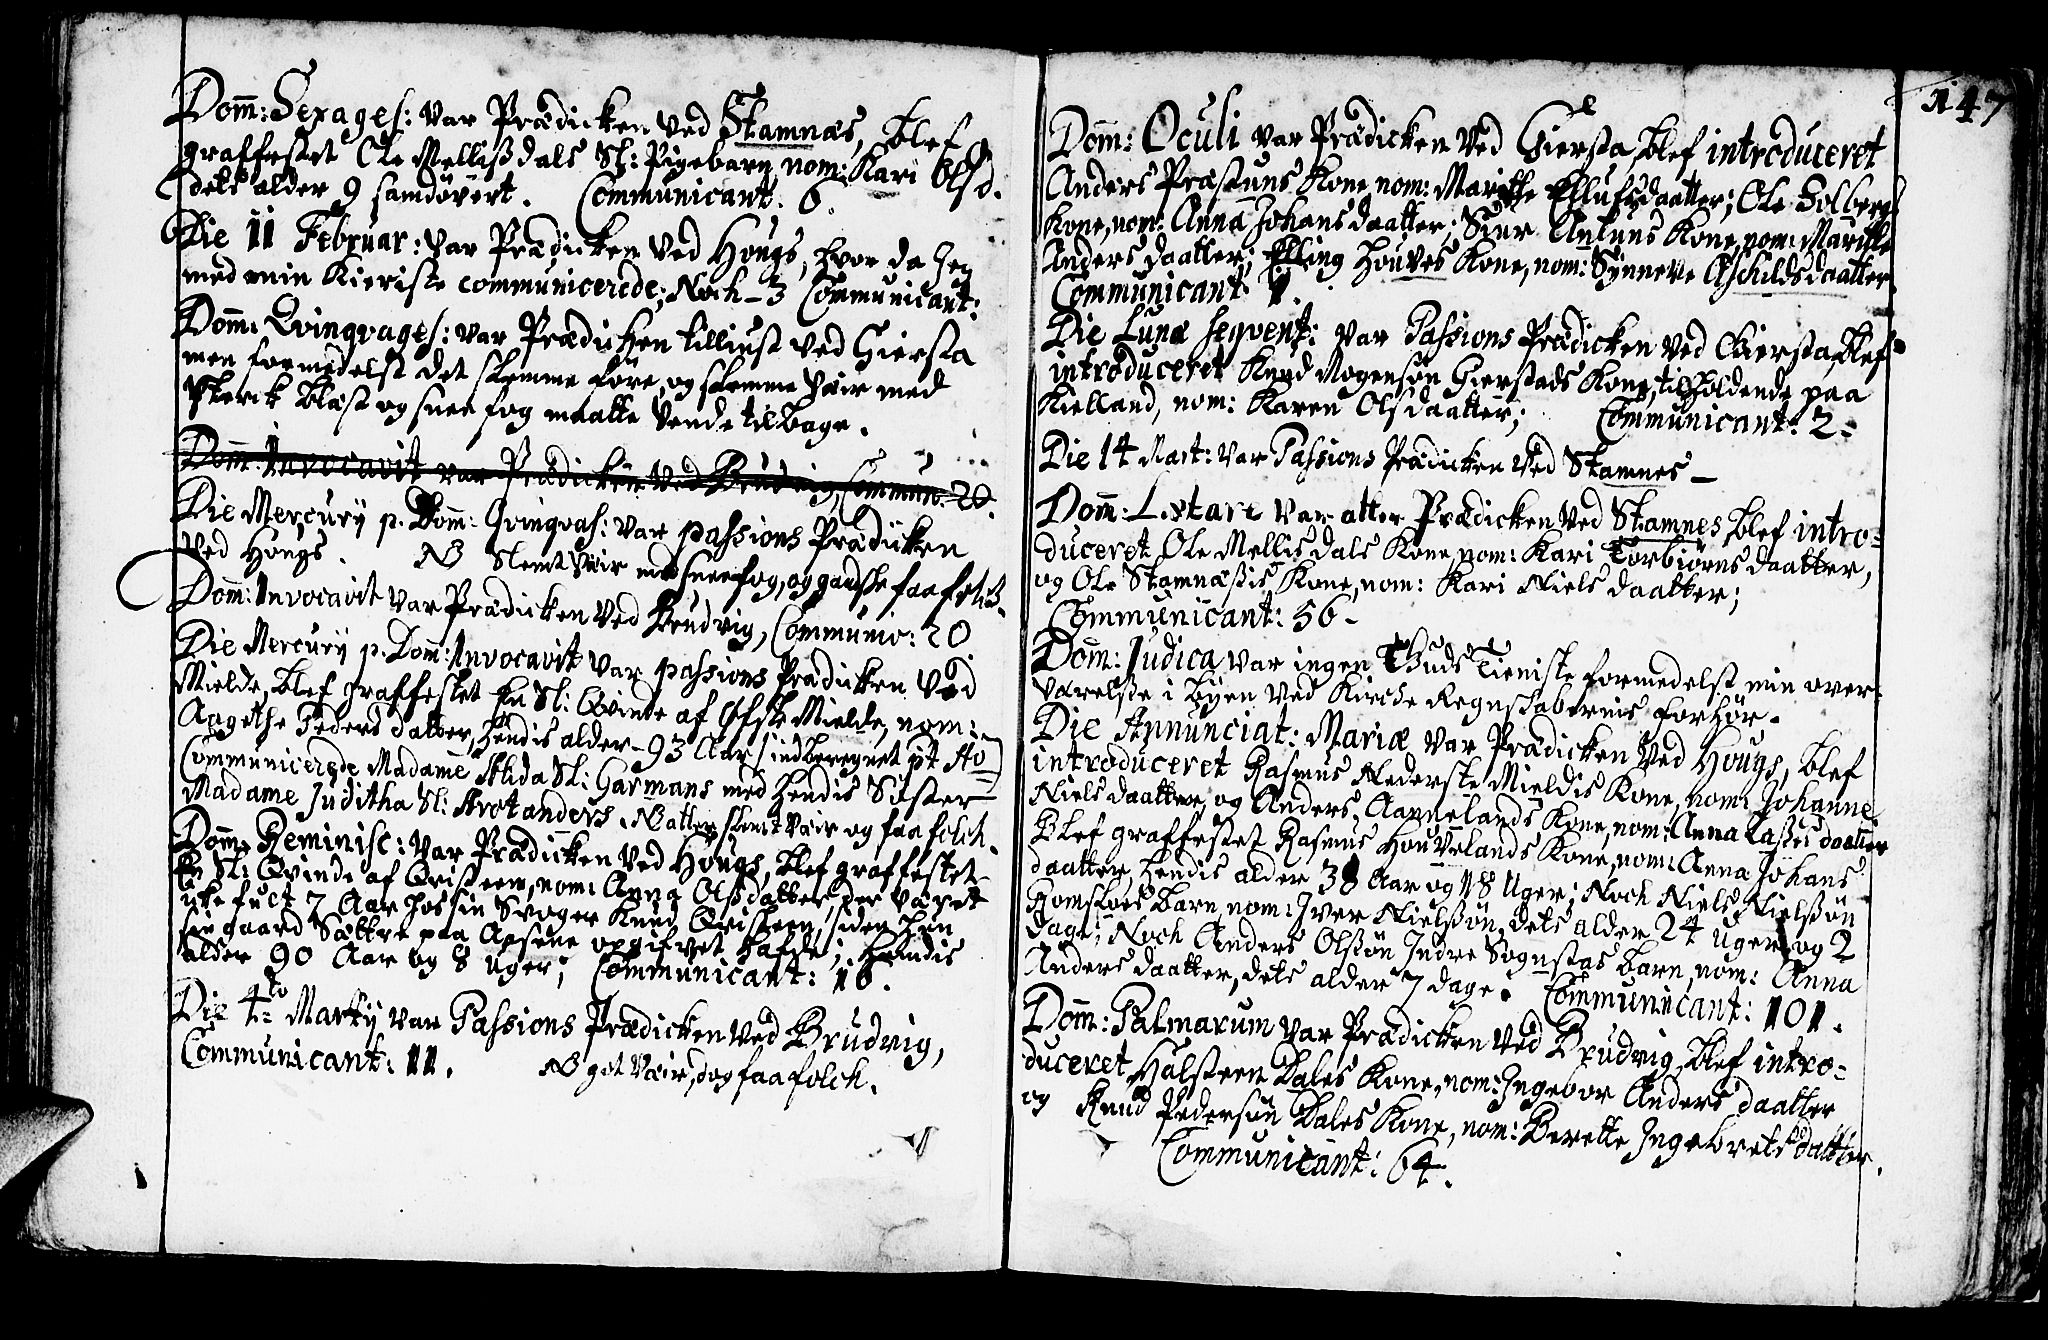 Dom̄: Sexages: var Prædicken ved Stamnæs, blef
graffestet Ole Mellißdals Sl: Pigebarn, nom: Kari Olsd.
dets alder 9 samdövert. Communicant. 6.
Die 11 Februar: var Prædicken ved Hougs, hvor da Jeg
med min Kieriste communicerede; Noch - 3 Communicant:
Dom̄: Qvingvages: var Prædicken tilliust ved Giersta
men formedelst det slemme före, og slemme Vair med
sterck blæst og snee fog maatte vende tilbage.
Dom̄: Invocavit var Prædicken ved Brudvig, Commun: 20.
Die Mercurij p. Dom̄: Qvingvas: var passions Prædicken
ved Hougs. NB slemt Vair med sneefog, og gandske faa folck.
Dom̄: Invocavit var Prædicken ved Brudvig, Communio: 20
Die Mercurij p. Dom̄: Invocavit var passions Prædicken ved
Mielde, blef graffestet En Sl: Qvinde af Öfste Mielde, nom:
Aagethe Peders datter, hendis alder - 93 Aar indberegnet pt Ao
Communicerede Madame Alida Sl: Garmans med hendis Söster
Madame Juditha Sl: Arotanders. NB atter slemt Vair og faa folch.
Dom̄: Reminisc: var Prædicken ved Hougs, blef graffestet
En Sl: Qvinde af Qvisteen, nom: Anna Olsdatter, der været
icke fuct 7 Aar hos sin Svoger Knud Qvisteen, siden hun
sin gaard Sættre paa Apsene opgifvet hafde; hendis
alder 90 Aar og 8 uger; Communicant: 16.
Die 4to Martij var Passions Prædicken ved Brudvig,
Communicant: 11. NB got Vair, dog faa folch.
147
Dom̄: Oculi var Prædicken ved Giersta, blef introduceret
Anders Præstuns Kone, nom: Marithe Ellufsdaatter; Ole Solbergs
Kone, nom: Anna Johansdaatter; Siur Antuns Kone, nom: Marithe
Anders daatter; Elling Houves Kone, nom: Synneve Aschilds daatter.
Communicant 1.
Die Lunæ seqvent: var Passions Prædicken ved Giersta, blef
introduceret Knud Mogensön Gierstads Kone, tilholdende paa
Kielland, nom: Karen Olsdaatter; Communicant: 2.
Die 14 Mart: var Passions Prædicken ved Stamnes -
Dom̄: Lætare var atter Prædicken ved Stamnes, blef intro=
duceret Ole Mellisdals Kone, nom: Kari Torbiörns daatter,
og Ole Stamnæßis Kone, nom: Kari Niels daatter;
Communicant: 56 -
Dom̄: Judica var ingen Guds Tieniste formedelst min over=
værelße i byen ved Kirche Regnskabernis forhör.
Die Annunciat: Mariæ var Prædicken ved Hougs, blef
introduceret Rasmus Nederste Mieldis Kone, nom: Johanne
Niels daatter, og Anders Aannelands Kone, nom: Anna Laßes daatter
Blef graffestet Rasmus Houvelands Kone, nom: Anna Johans
daatter, hendis alder 38 Aar og 18 Uger; Noch Niels Nielßön
Romsloes barn, nom: Iver Nielßön, dets alder 24 uger og 2
dage; Noch Anders Olßön Indre Sognstas barn, nom: Anna
Anders daatter, dets alder 7 dage. Communicant: 101.
Dom̄: Palmarum var Prædicken ved Brudvig, blef intro=
duceret Halsteen Dales Kone, nom: Ingebor Anders daatter
og Knud Pedersön Dales Kone, nom: Berette Ingebrets dätter.
Communicant: 64.